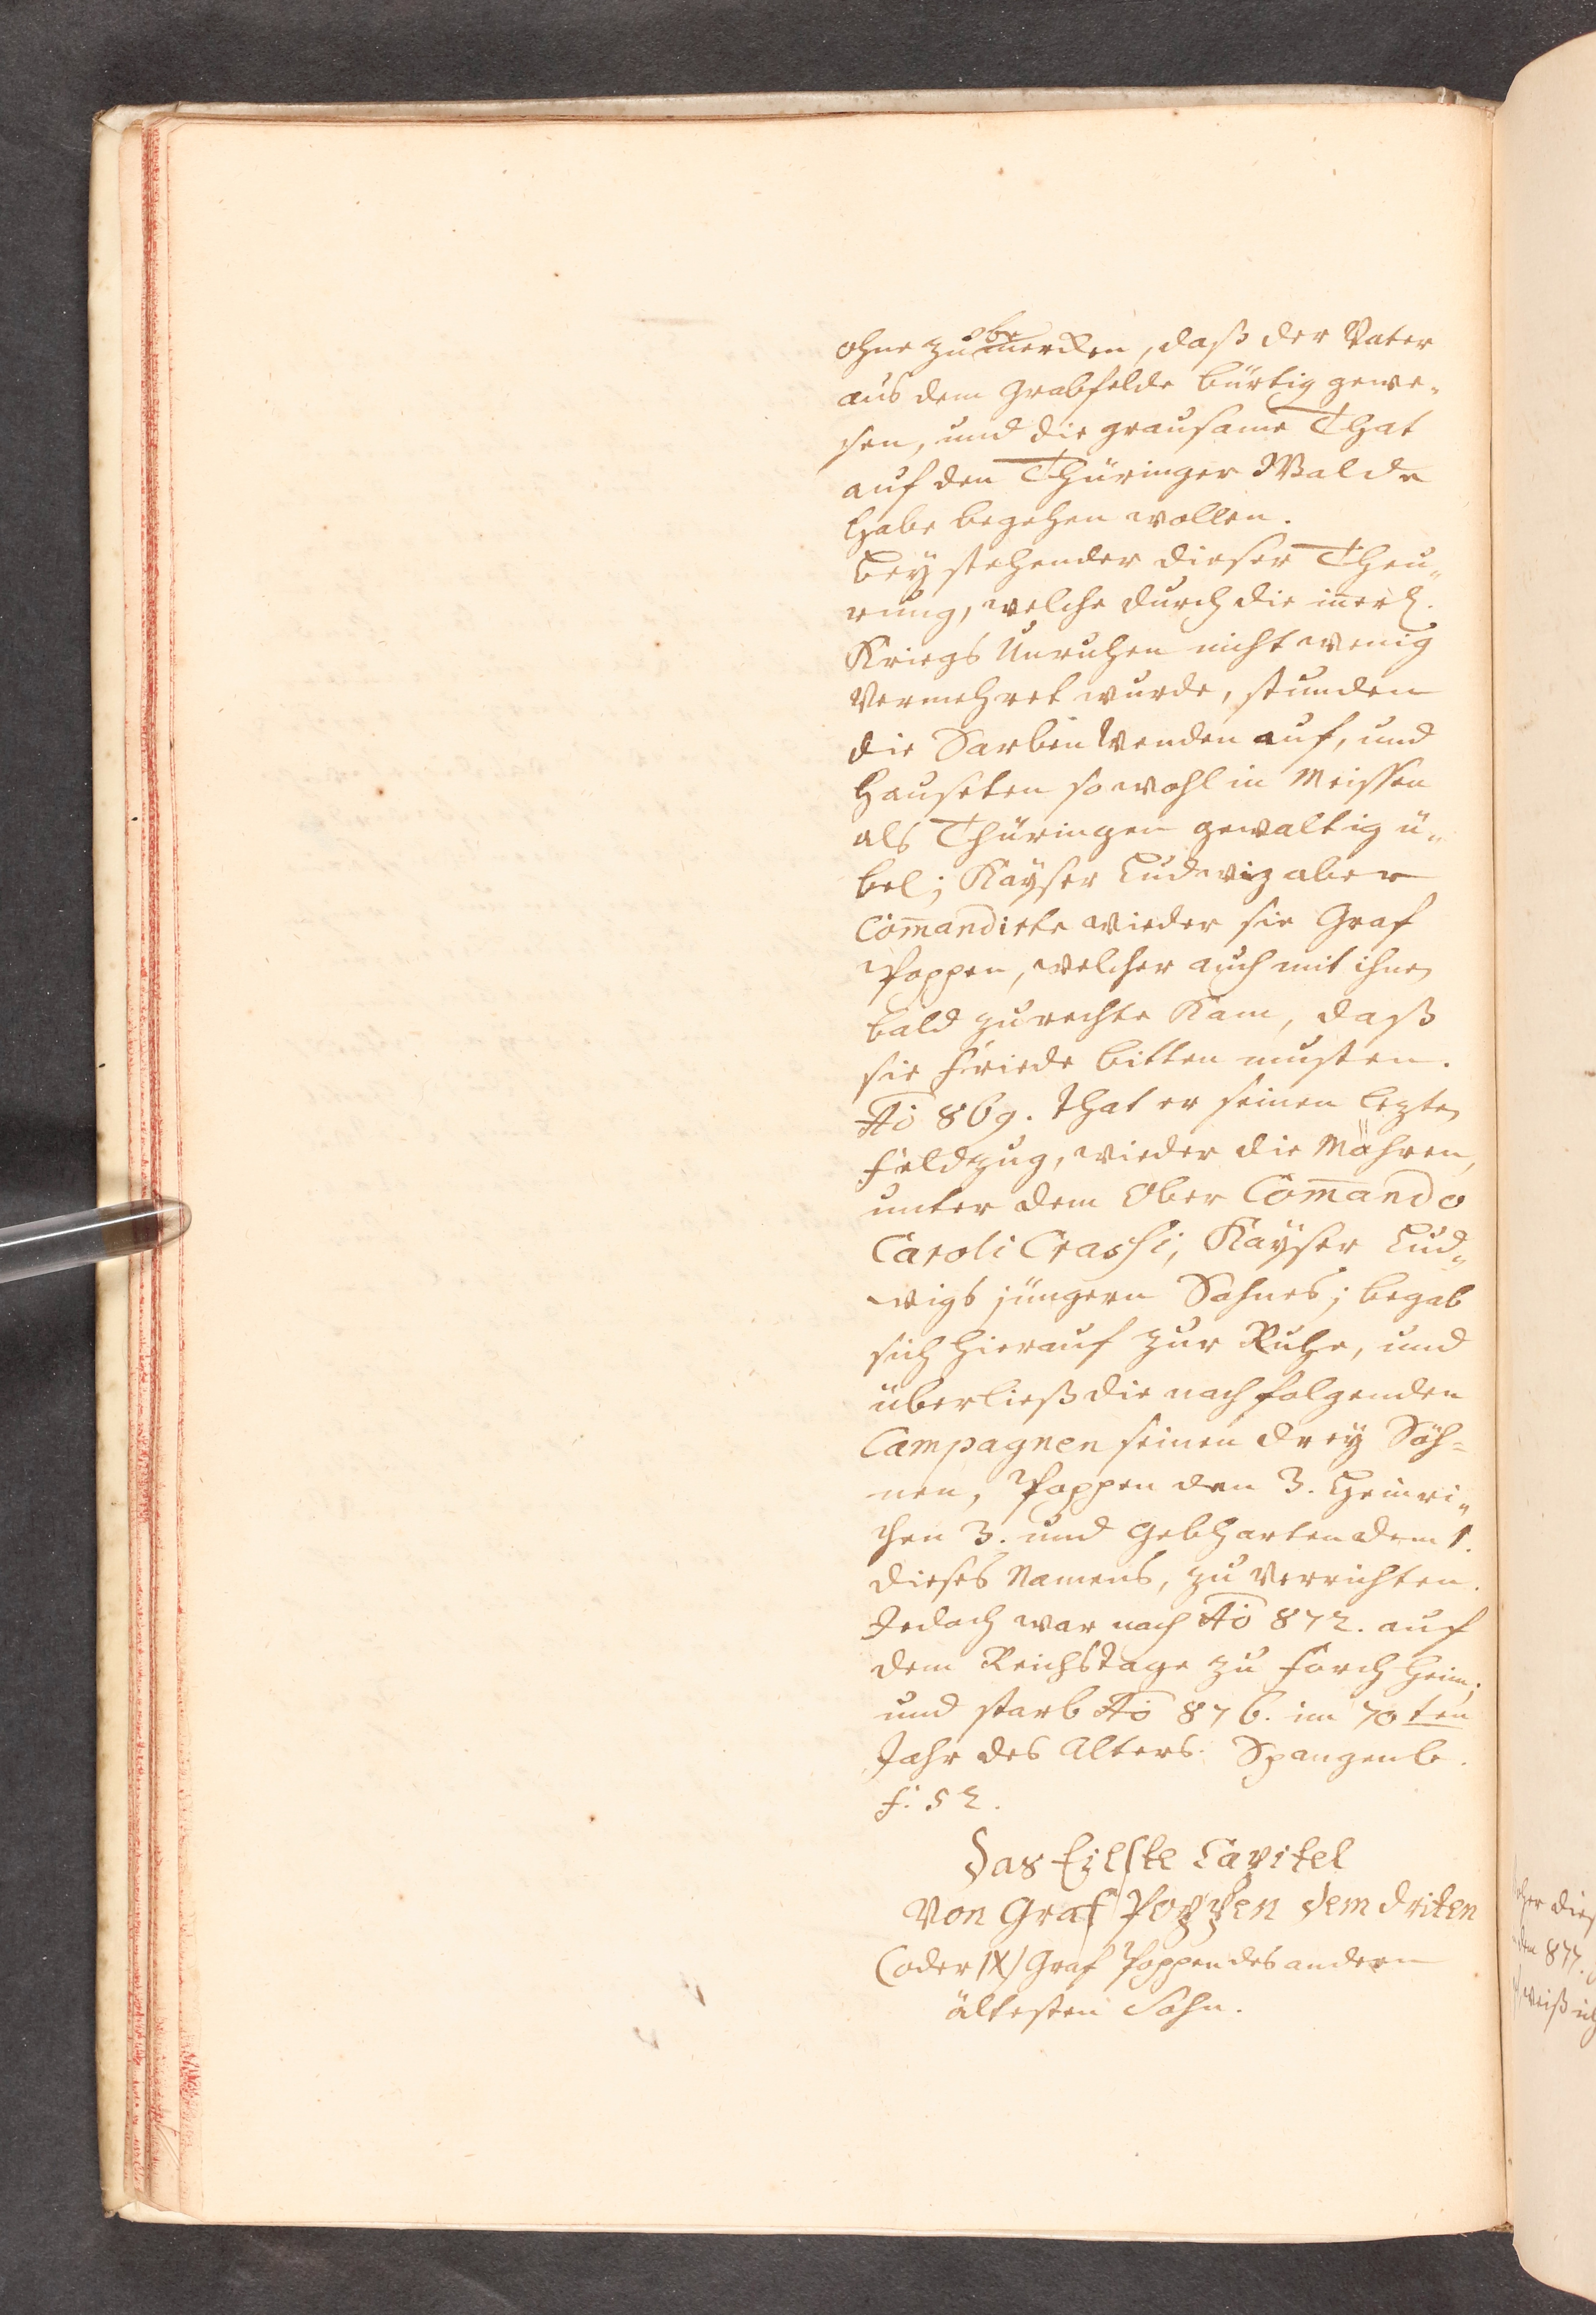 ohne zu bemercken, daß der Vater
aus dem Grabfelde bürtig gewe-
sen, und die grausame That
auf den Thüringer Walde
habe begehen wollen.
Bey stehender dieser Theu-
rung, welche durch die inerl.
Kriegs Unruhen nicht wenig
vermehret wurde, stunden
die Sorben Wenden auf, und
hauseten sowohl in Meissen
als Thüringen gewaltig ü-
bel; Kayser Ludewig aber
Com̄andirte wieder sie Graf
Poppen, welcher auch mit ihnen
bald zurechte kam, daß
sie Friede bitten musten.
Ao 869. that er seinen lezten
Feldzug, wieder die Mähren,
unter dem Ober Com̄ando
Caroli Crassi, Kayser Lud-
wigs jüngern Sohnes; begab
sich hierauf zur Ruhe, und
überließ die nachfolgenden
Campagnen seinen drey Söh-
nen, Poppen den 3. Heinri-
chen 3. und Gebharten dem 1.
dieses Namens, zu verrichten.
Jedoch war noch Ao 872. auf
dem Reichstage zu Forchheim;
und starb Ao 876. im 70ten
Jahr des Alters. Spangenb.
f. 52.
Das Eilfte Capitel
Von Graf Poppen dem driten
(oder IX) Graf Poppen des andern
ältesten Sohn.
dies
877.
weiß ich